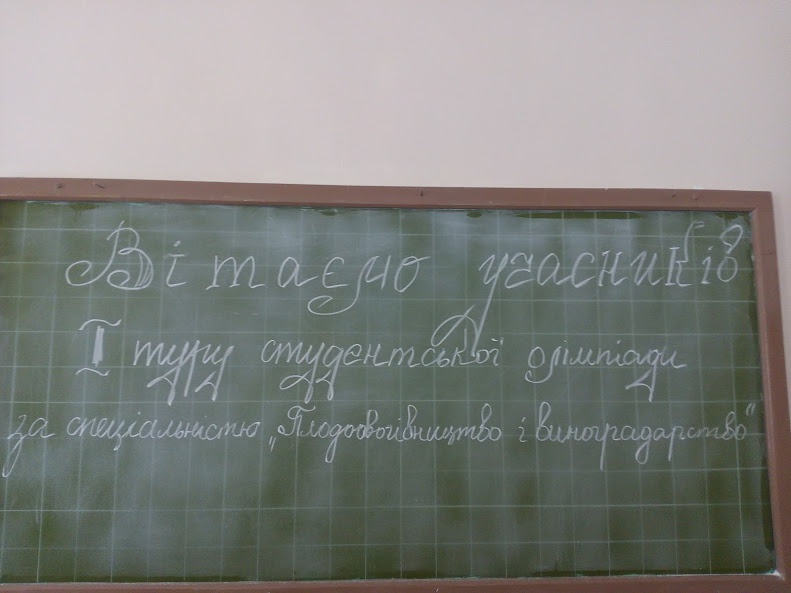 Вітаємо учасників
I туру студентської олімпіади
за спеціальністю „Плодоовочівництво і виноградарство"